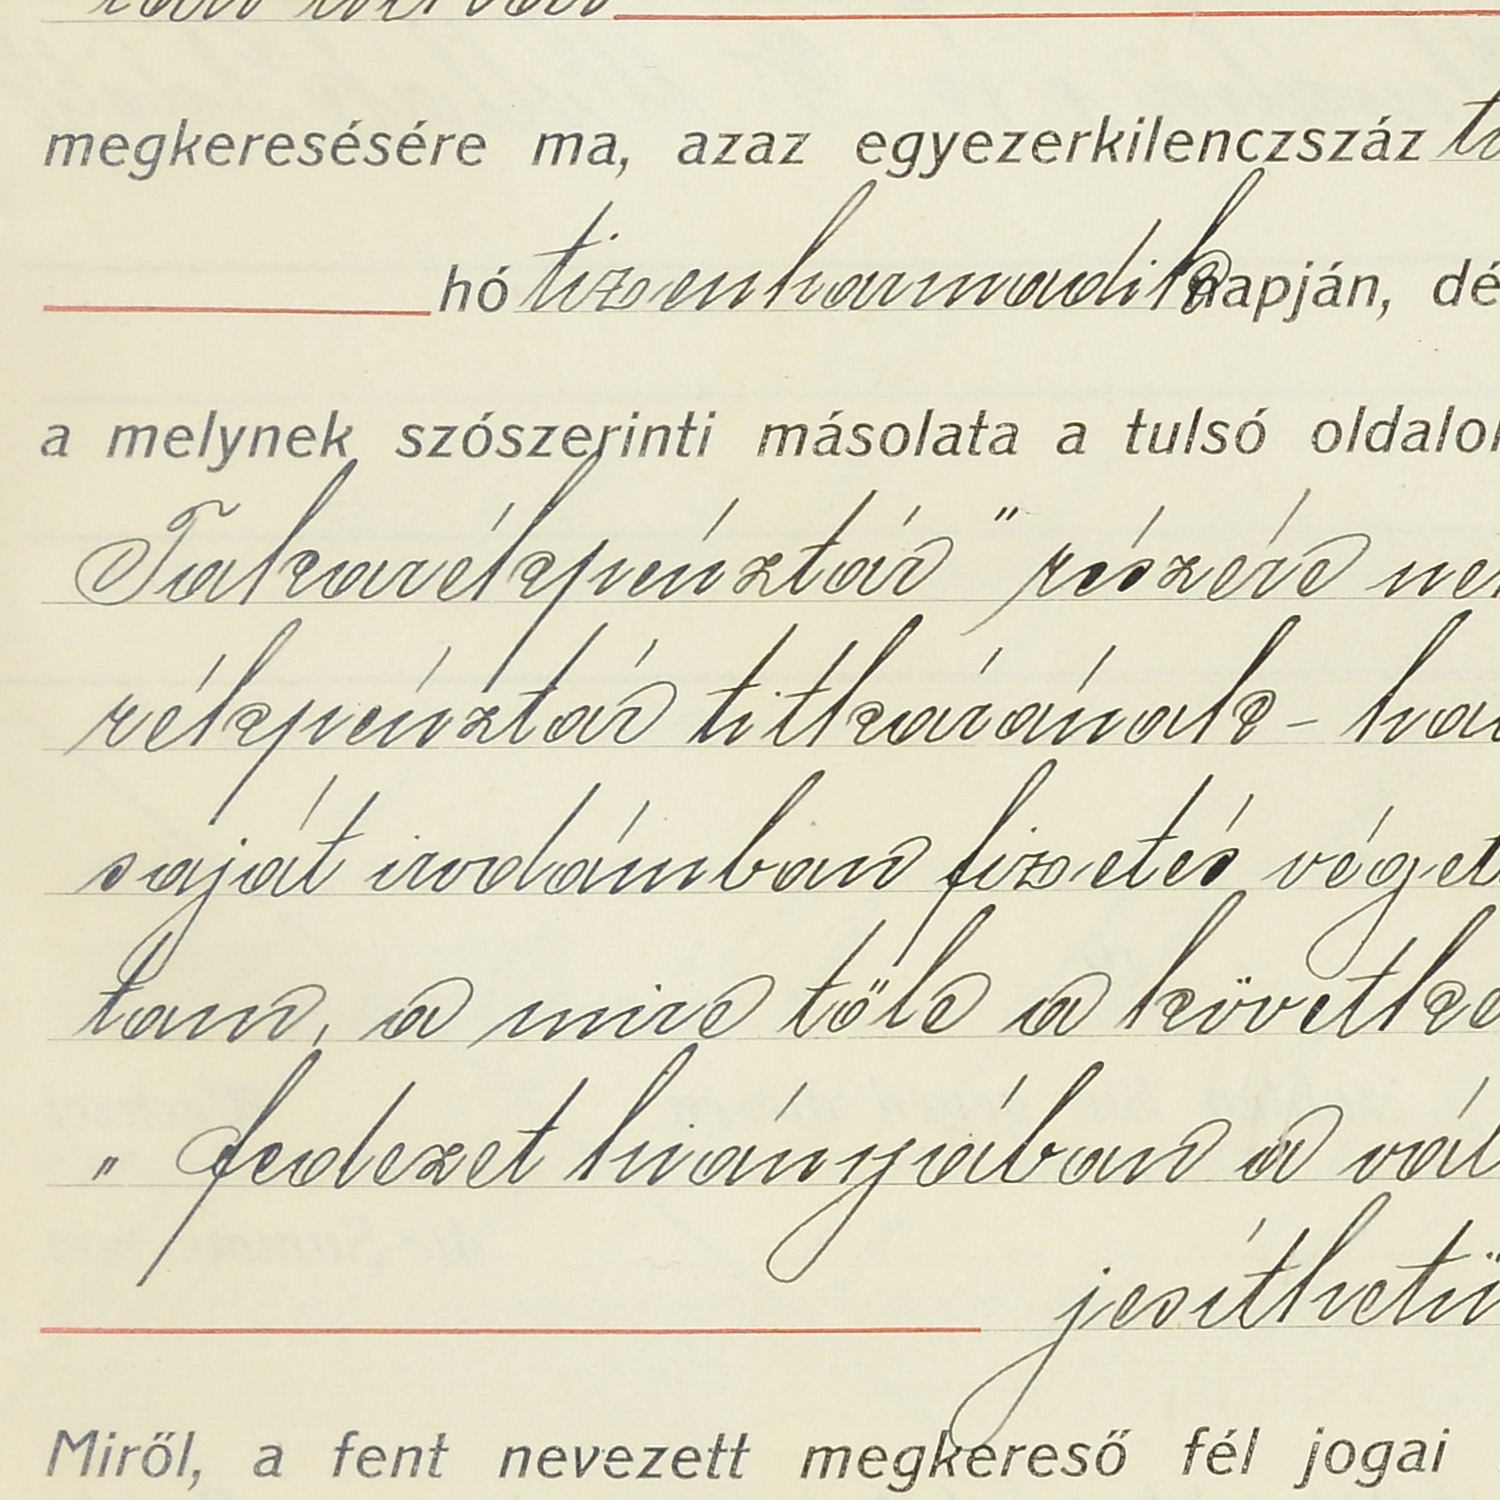 megkeresésére ma, azaz egyezerkilenczszáz
hó tizenharmadik napján, dé
a melynek szószerinti másolata a tulsó oldalon
Takarékpénztár" részére
rékpénztár titkárának -
saját irodámban fizetés végett
tam, a mire tőle a követke
" fedezet hiányában a vál
jesíthetü
Miről, a fent nevezett megkereső fél jogai